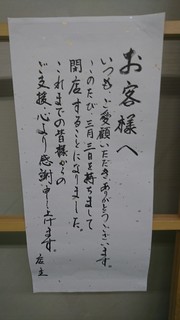 お客様へ
いつもご愛顧いただきありがとうございます。
このたび、三月三日を持ちまして
閉店することになりました。
これまでの皆様からの
ご支援、心より感謝申し上げます。
店主